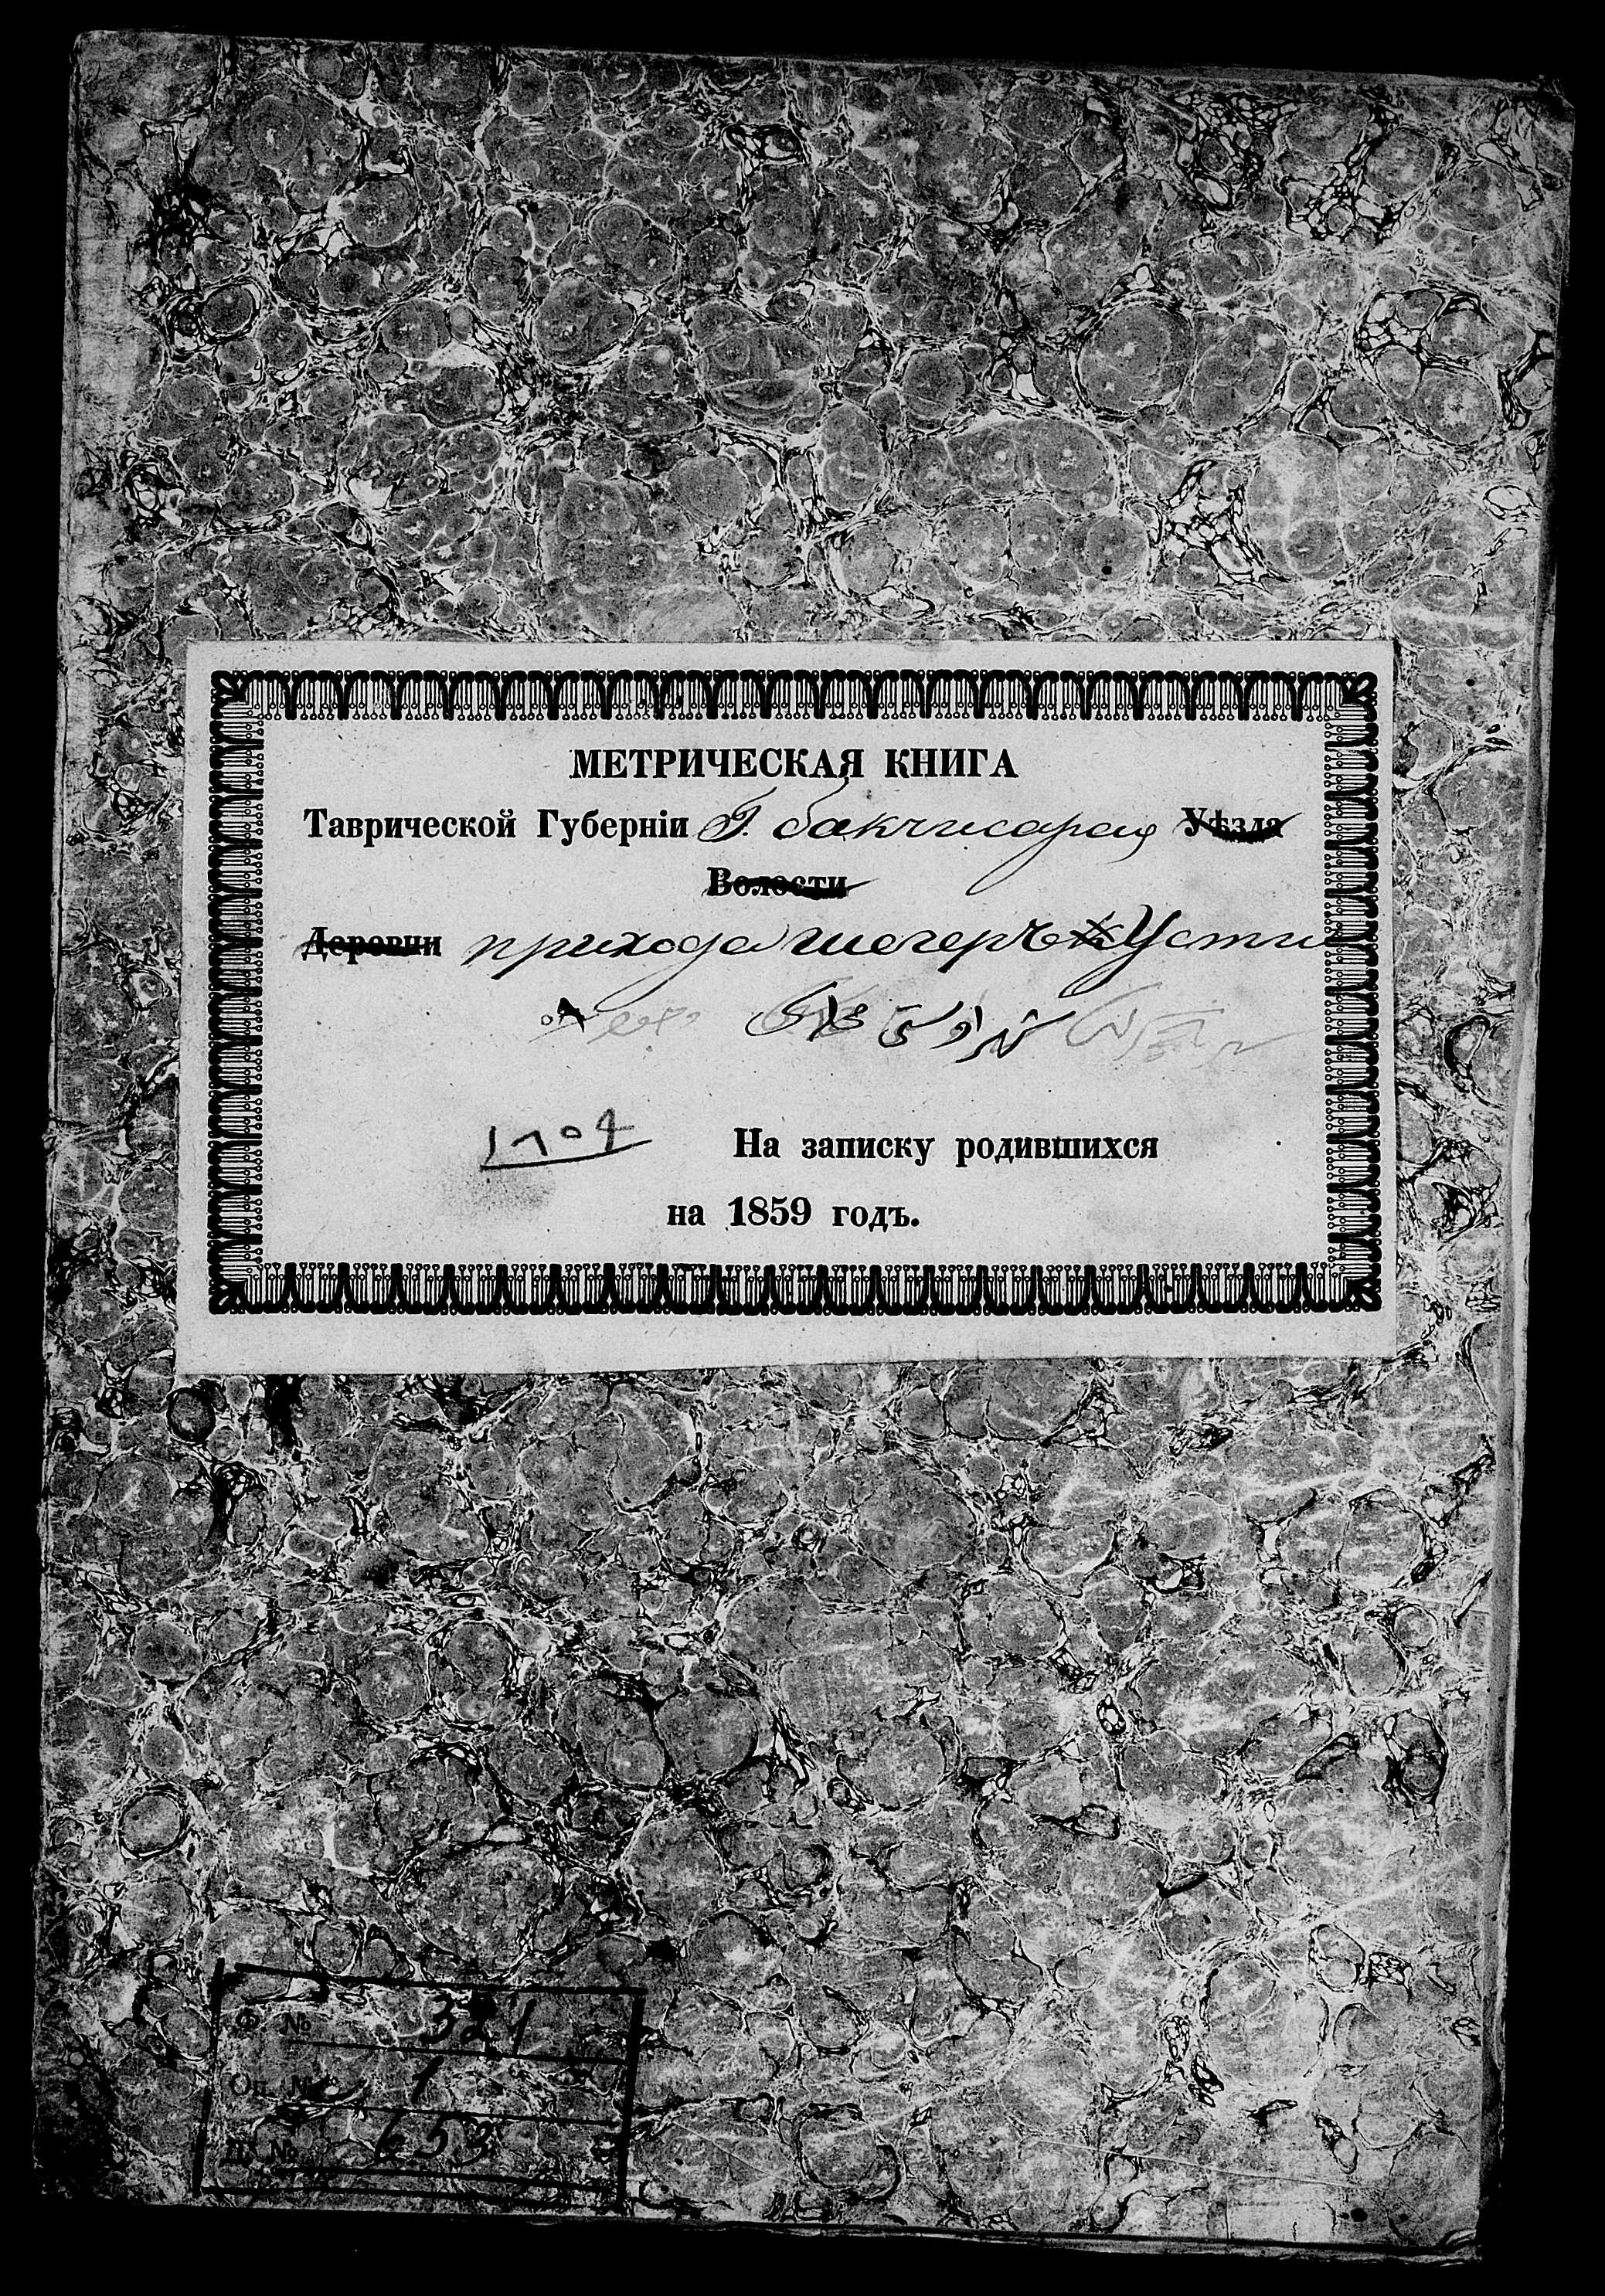 МЕТРИЧЕСКАЯ КНИГА
Таврической Губерніи Г. бакчисарая Уѣзда
Волости
Деревни прихода шегерче Усти
На записку родившихся
на 1859 годъ.
Ф. № 321
Оп. № 1
Д. № 653